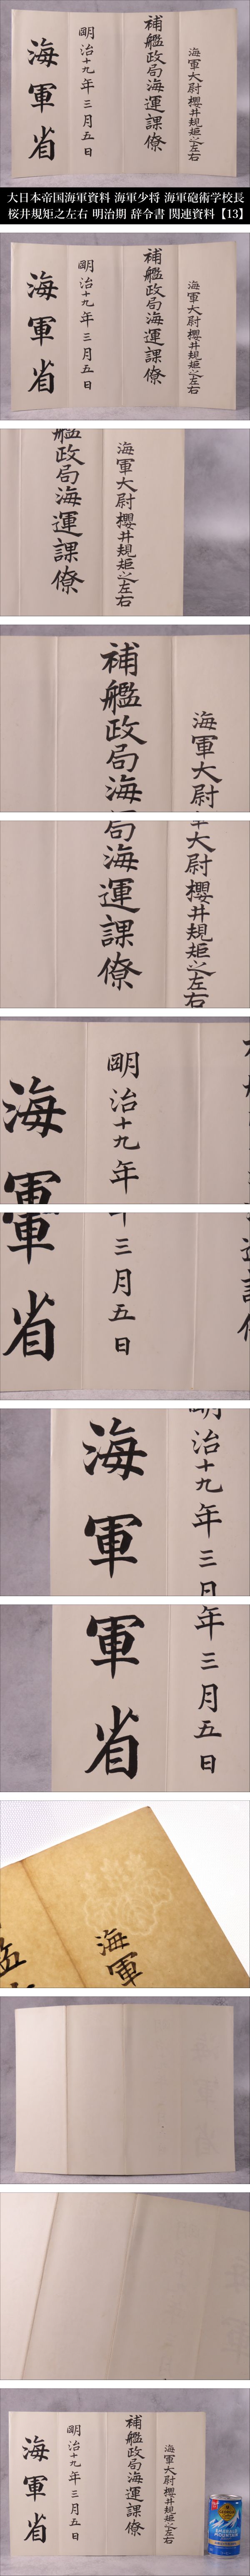 海軍大尉櫻井規矩之左右
補艦政局海運課僚
明治十九年三月五日
海軍省
大日本帝国海軍資料 海軍少将 海軍砲術学校長
桜井規矩之左右 明治期 辞令書 関連資料【13】
海軍大尉櫻井規矩之左右
補艦政局海運課僚
明治十九年三月五日
海軍省
海軍大尉櫻井規矩之左右
艦政局海運課僚
海軍大尉
補艦政局海
大尉櫻井規矩之左右
局海運課僚
明治十九年
海軍
三月五日
軍省
治十九年三
海軍
年三月五日
軍省
海軍
海軍大尉櫻井規矩之左右
補艦政局海運課僚
明治十九年三月五日
海軍省
EMERALD
MOUNTAIN